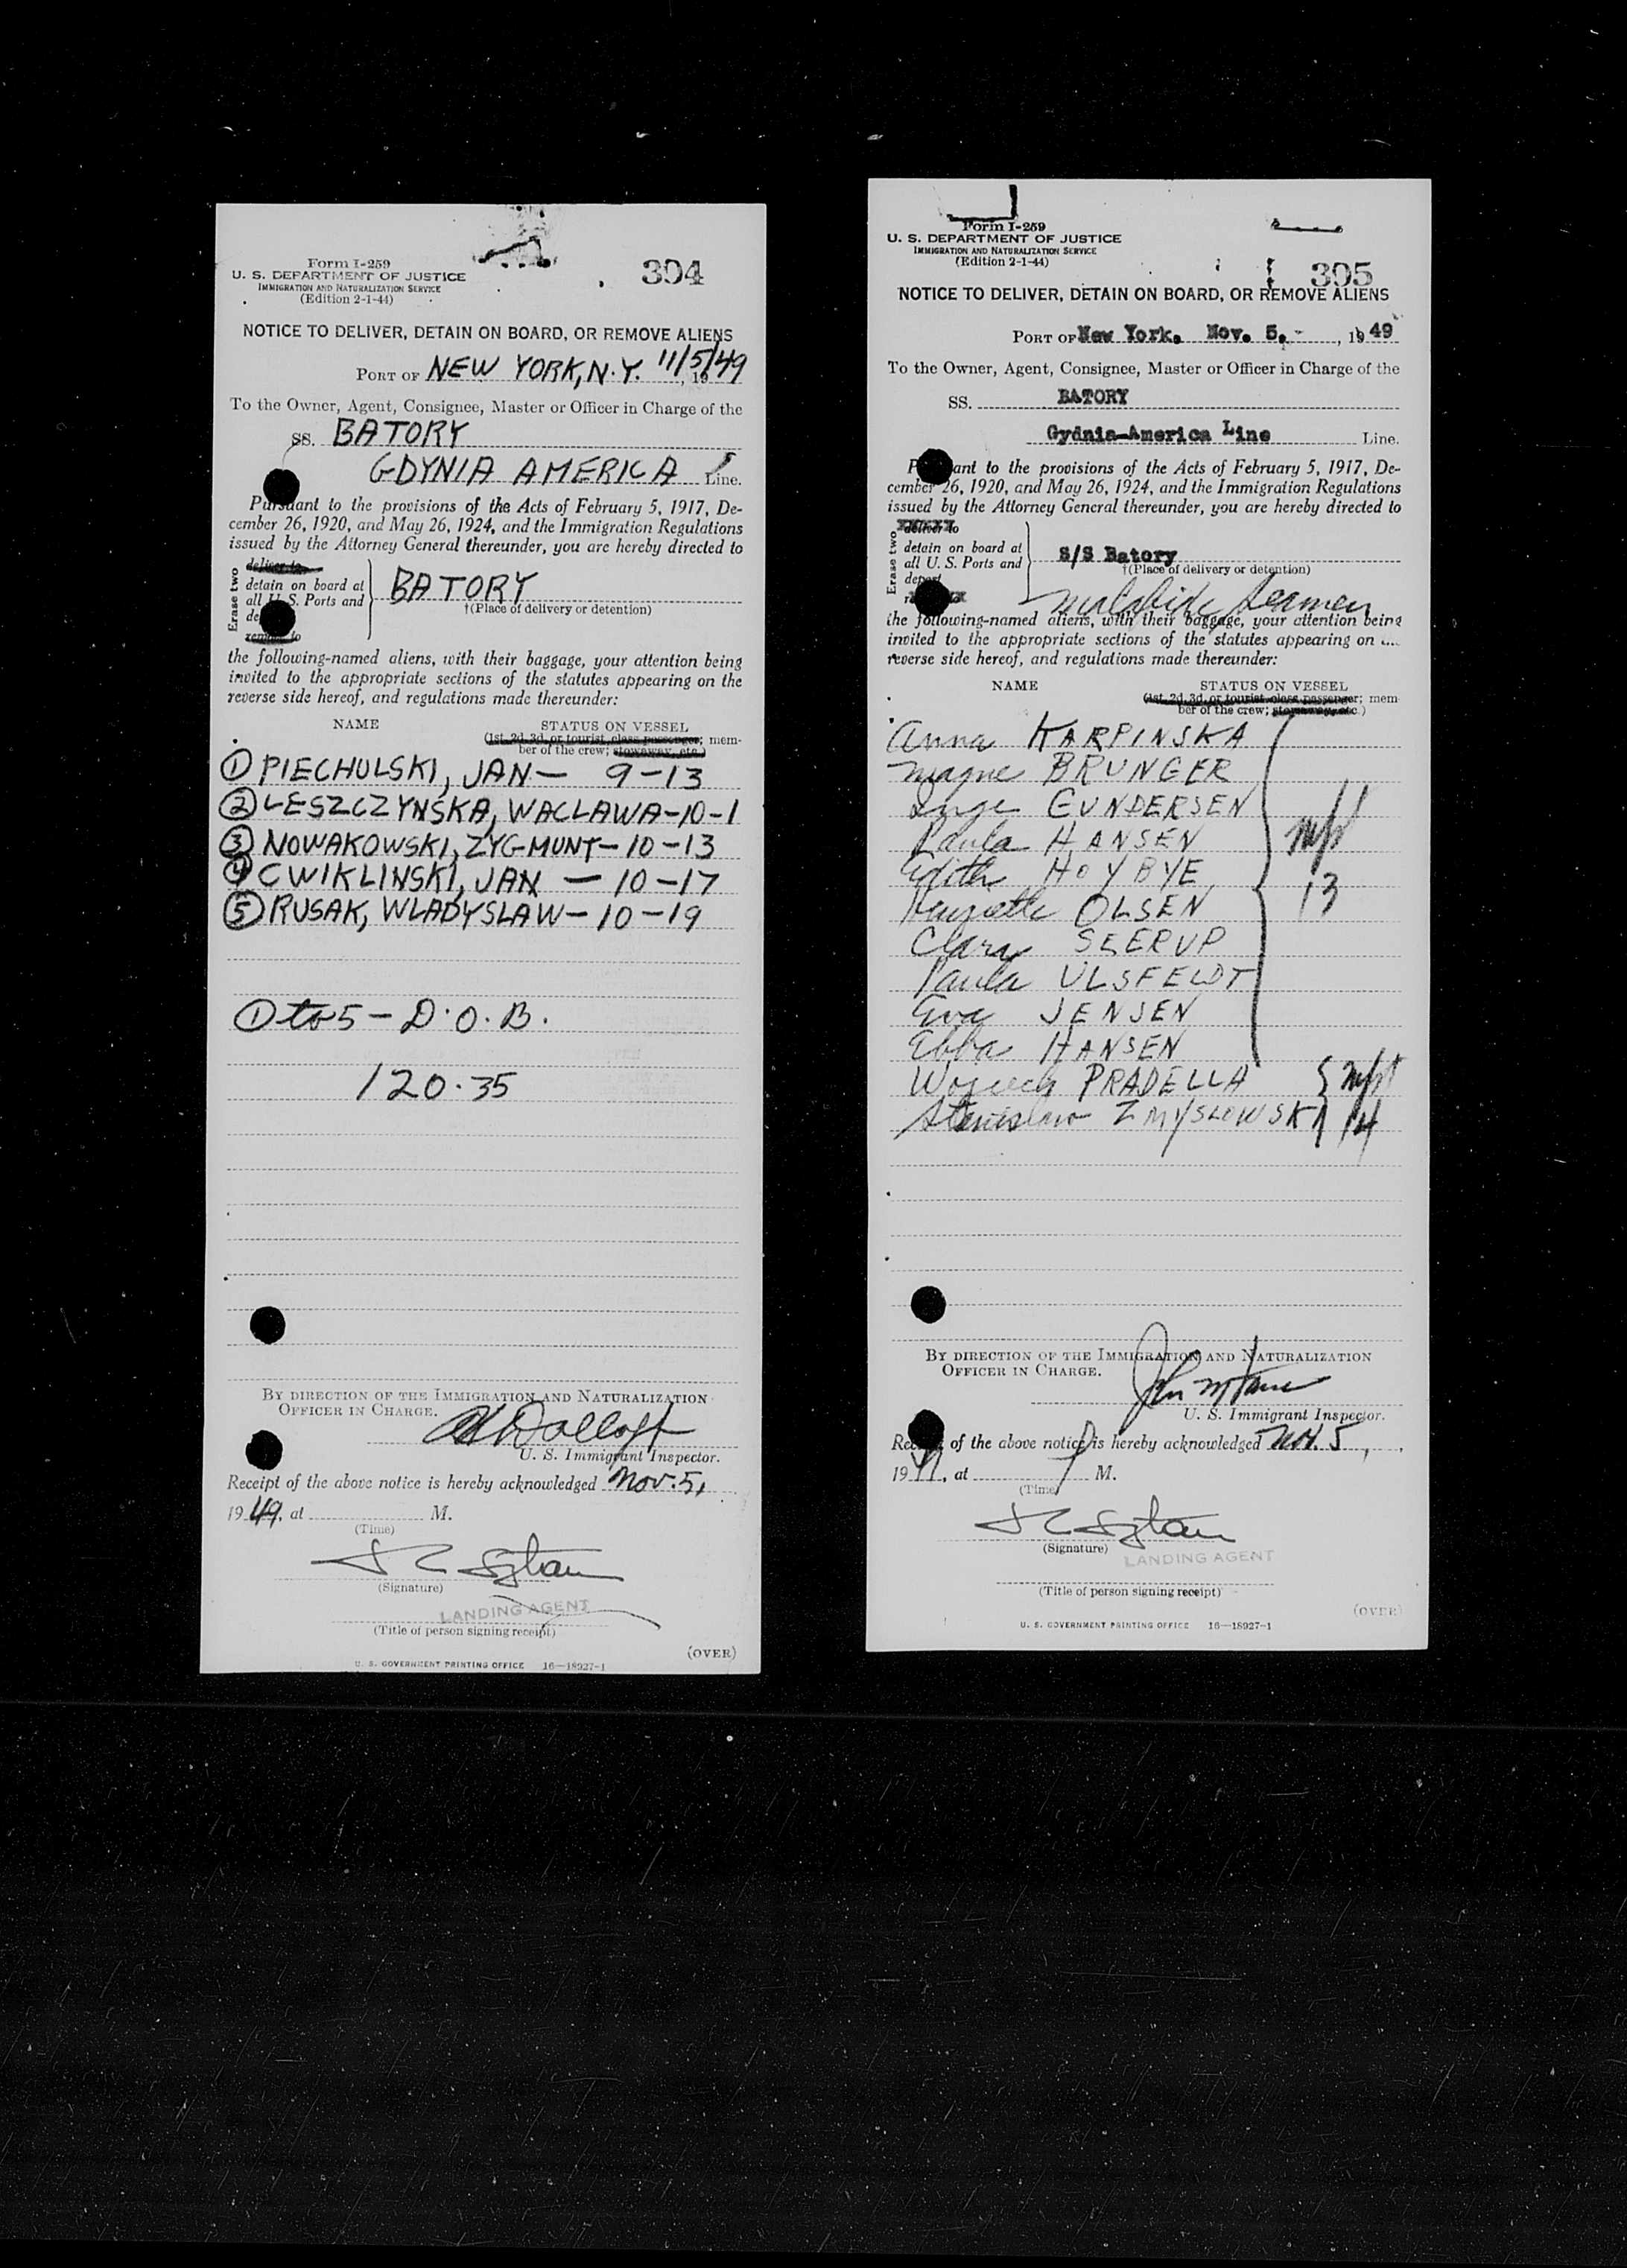 Form I-259
U. S. DEPARTMENT OF JUSTICE
IMMIGRATION AND NATURALIZATION SERVICE
(Edition 2-1-44)
304
NOTICE TO DELIVER, DETAIN ON BOARD, OR REMOVE ALIENS
PORT OF NEW YORK, N.Y. 11/5/49, 19
To the Owner, Agent, Consignee, Master or Officer in Charge of the
SS. BATORY
GDYNIA AMERICA Line.
Pursuant to the provisions of the Acts of February 5, 1917, De-
cember 26, 1920, and May 26, 1924, and the Immigration Regulations
issued by the Attorney General thereunder, you are hereby directed to
Erase two
deliver to
detain on board at
all U. S. Ports and
de
remove to
BATORY
†(Place of delivery or detention)
the following-named aliens, with their baggage, your attention being
invited to the appropriate sections of the statutes appearing on the
reverse side hereof, and regulations made thereunder:
NAME STATUS ON VESSEL
(1st, 2d, 3d, or tourist class passenger; mem-
ber of the crew; stowaway, etc.)
① PIECHULSKI, JAN — 9-13
② LESZCZYNSKA, WACLAWA-10-1
③ NOWAKOWSKI, ZYGMUNT-10-13
④ CWIKLINSKI, JAN — 10-17
⑤ RUSAK, WLADYSLAW-10-19
① to 5 - D.O.B.
120.35
BY DIRECTION OF THE IMMIGRATION AND NATURALIZATION
OFFICER IN CHARGE.
U. S. Immigrant Inspector.
Receipt of the above notice is hereby acknowledged Nov. 5,
1949, at M.
(Time)
(Signature)
LANDING AGENT
(Title of person signing receipt)
(OVER)
U. S. GOVERNMENT PRINTING OFFICE 16—18927-1
Form I-259
U. S. DEPARTMENT OF JUSTICE
IMMIGRATION AND NATURALIZATION SERVICE
(Edition 2-1-44)
305
NOTICE TO DELIVER, DETAIN ON BOARD, OR REMOVE ALIENS
PORT OF New York, Nov. 5, -, 1949
To the Owner, Agent, Consignee, Master or Officer in Charge of the
SS. BATORY
Gydnia-America Line Line.
P ant to the provisions of the Acts of February 5, 1917, De-
cember 26, 1920, and May 26, 1924, and the Immigration Regulations
issued by the Attorney General thereunder, you are hereby directed to
Erase two
deliver to
detain on board at
all U. S. Ports and
deport
S/S Batory
†(Place of delivery or detention)
malafide seamen
the following-named aliens, with their baggage, your attention being
invited to the appropriate sections of the statutes appearing on
reverse side hereof, and regulations made thereunder:
NAME STATUS ON VESSEL
(1st, 2d, 3d, or tourist class passenger; mem-
ber of the crew; stowaway, etc.)
Anna KARPINSKA
Magne BRUNGER
Inge GUNDERSEN
Paula HANSEN
Edith HOYBYE 13
OLSEN
Clara SEERUP
Paula ULSFELDT
Eva JENSEN
Ebba HANSEN
PRADELLA
Stanislaw ZMYSLOWSKI 14
BY DIRECTION OF THE IMMIGRATION AND NATURALIZATION
OFFICER IN CHARGE.
U. S. Immigrant Inspector.
Rec of the above notice is hereby acknowledged Nov. 5,
19, at M.
(Time)
(Signature)
LANDING AGENT
(Title of person signing receipt)
(OVER)
U. S. GOVERNMENT PRINTING OFFICE 16—18927-1